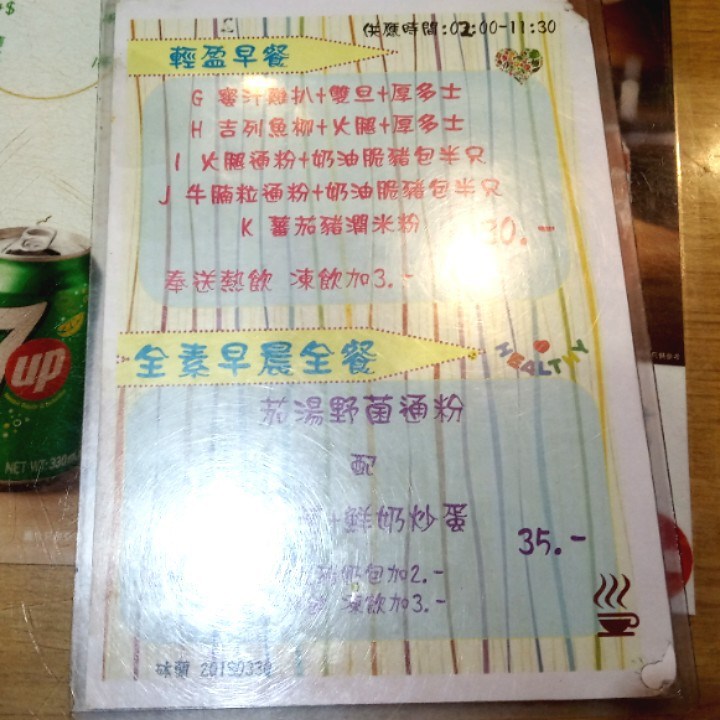 供應時間:02:00-11:30
輕盈早餐
G 蜜汁雞扒+雙旦+厚多士
H 吉列魚柳+火腿+厚多士
I 火腿通粉+奶油脆豬包半只
J 牛腩粒通粉+奶油脆豬包半只
K 蕃茄豬潤米粉
30.-
奉送熱飲 凍飲加3.-
全素早晨全餐
HEALTHY
茄湯野菌通粉
配
+鮮奶炒蛋
35.-
包加2.-
凍飲加3.-
20190330
7up
NET WT: 330